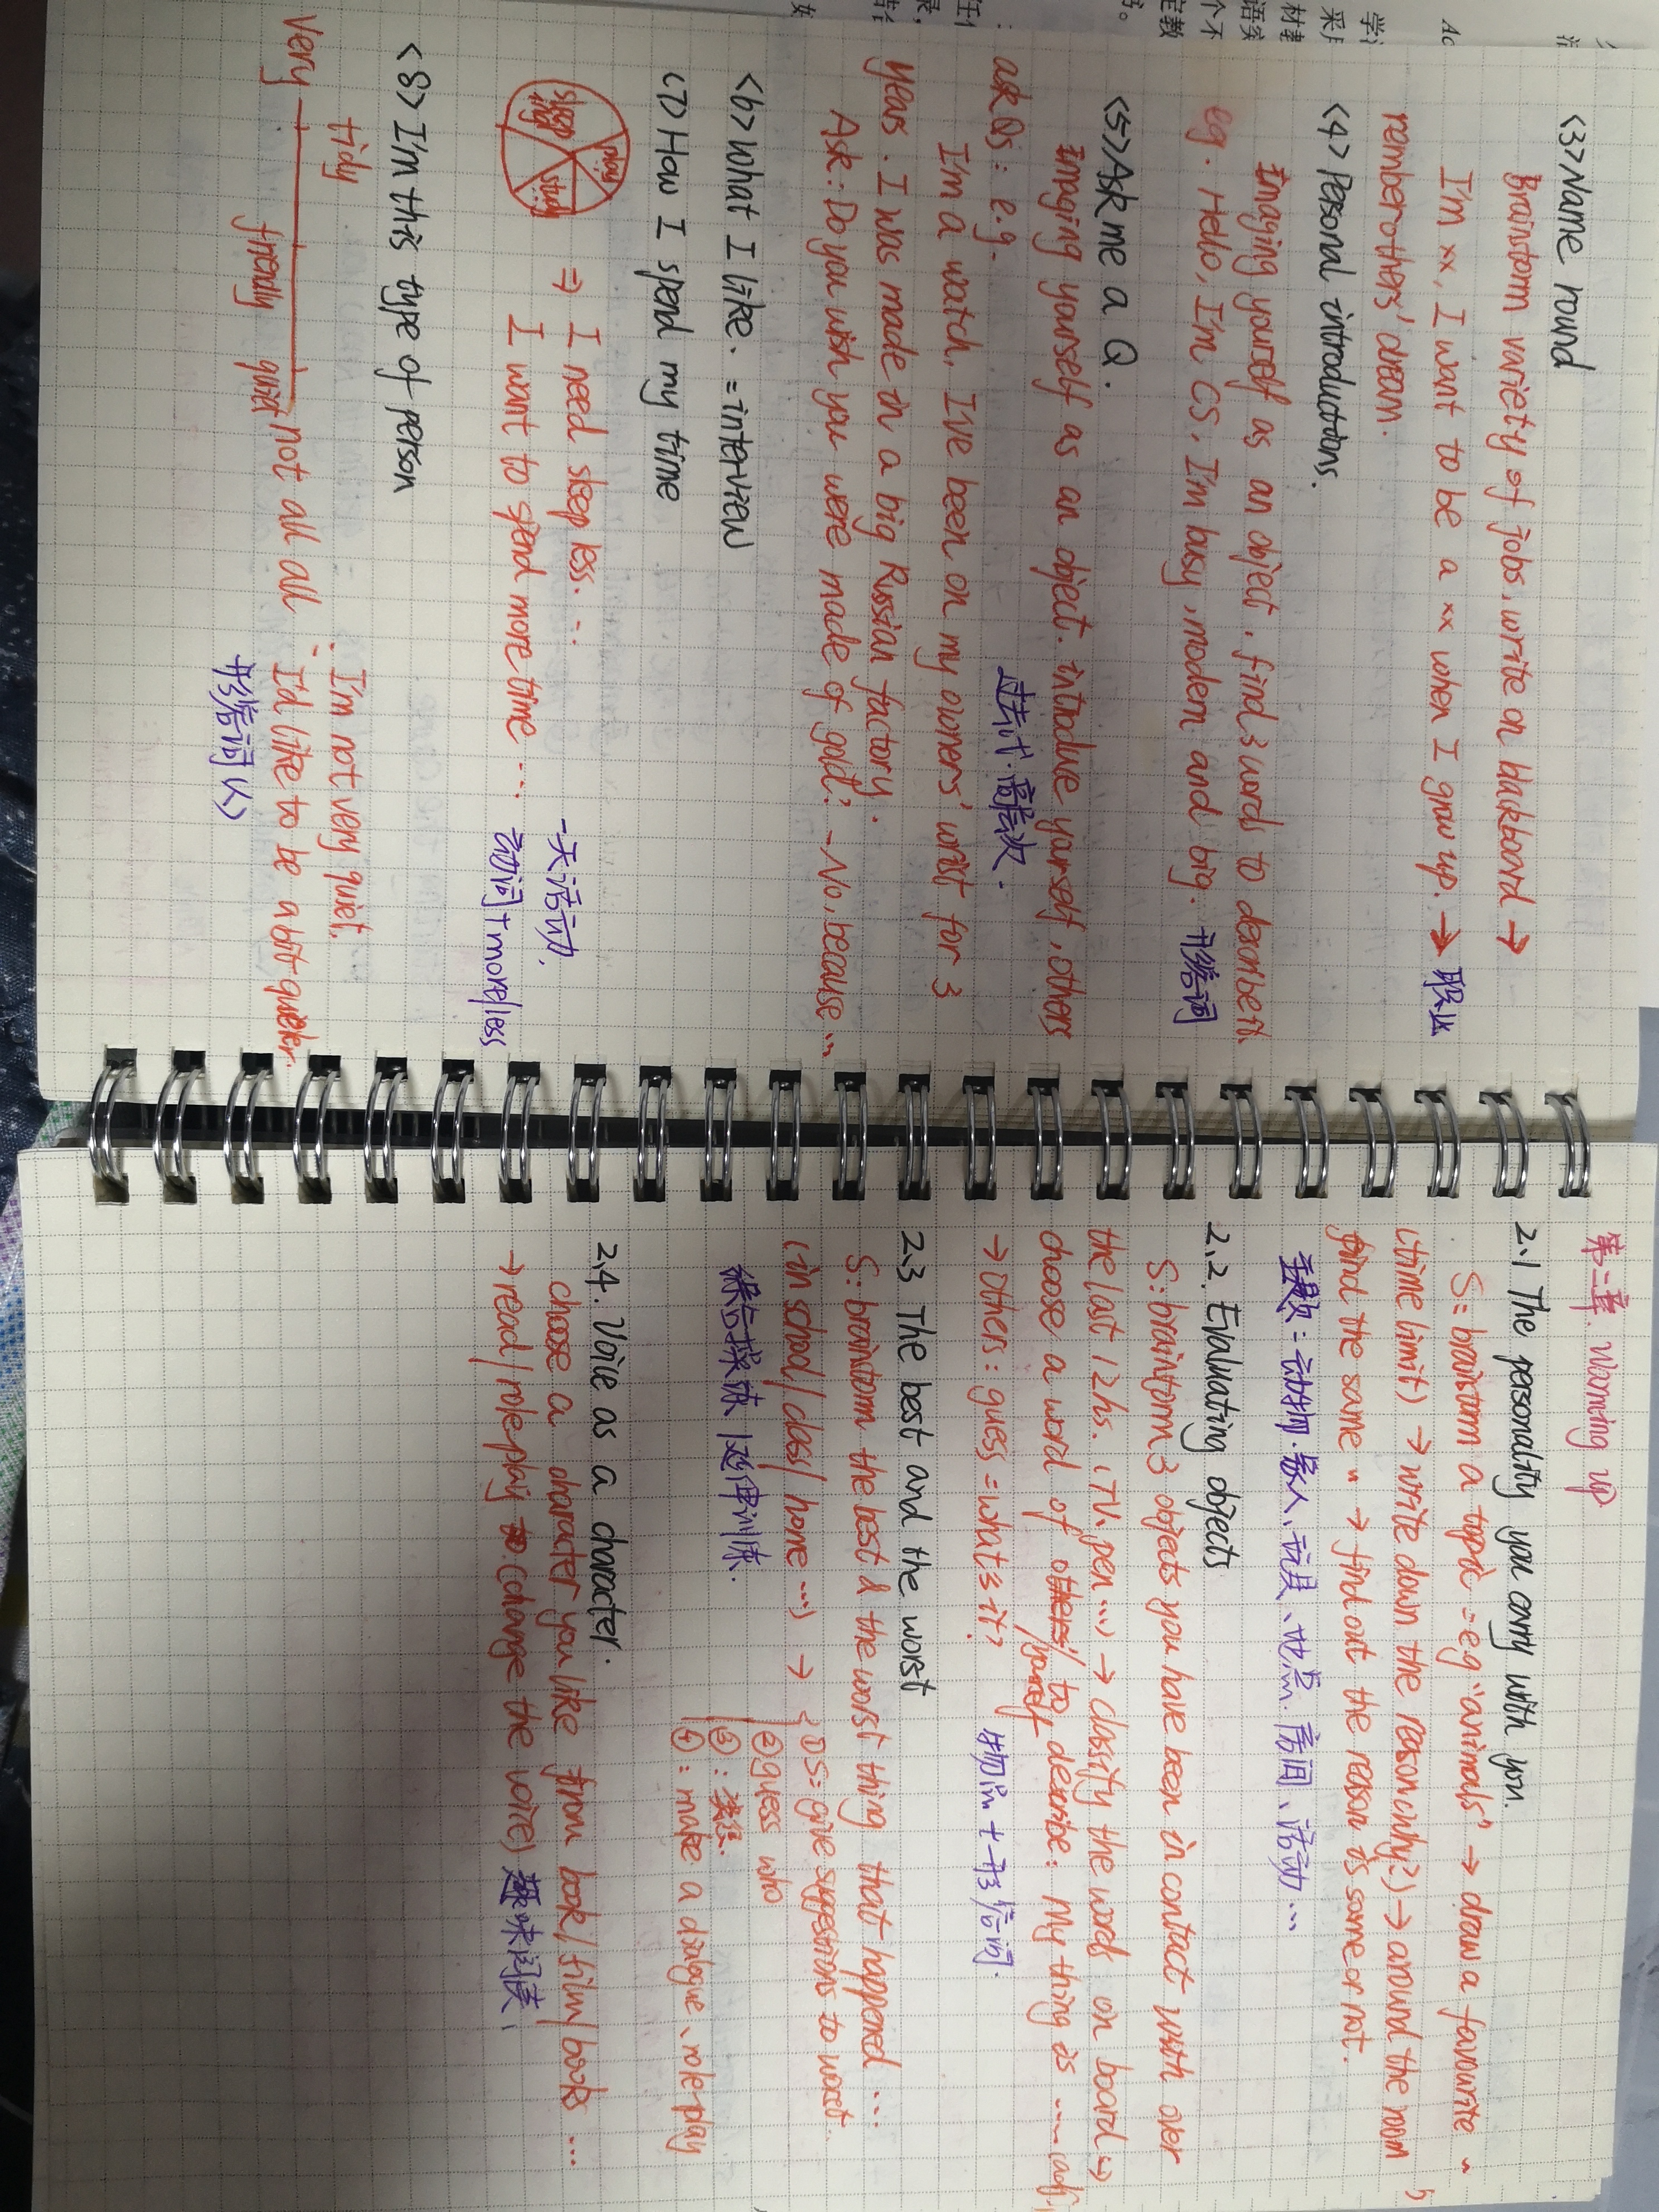 <3>Name round
Brainstorm variety of jobs, write on blackboard →
I'm xx, I want to be a xx when I grow up. → 职业
remember others' dream.
<4> Personal introductions.
Imaging yourself as an object, find 3 words to describe it
eg. Hello, I'm CS, I'm busy, modern and big. 形容词
<5>Ask me a Q.
Imaging yourself as an object. introduce yourself, others
ask Qs: e.g. 过去式.高层次.
I'm a watch, I've been on my owners' wrist for 3
years. I was made in a big Russian factory.
Ask: Do you wish you were made of gold? -No, because ...
<6>What I like. = interview
<7> How I spend my time
sleeping play study ⇒ I need sleep less. ... 一天活动,
I want to spend more time ... 动词+more/less
<8> I'm this type of person
tidy I'm not very quiet.
very friendly quiet not all all I'd like to be a bit quieter.
形容词(人)
第二章 Warming up
2.1 The personality you carry with you.
S: brainstorm a topic = eg "animals" → draw a favourite ~
(time limit) → write down the reason (why?) → around the room
find the same ~ → find out the reason is same or not.
主题: 动物.家人、玩具、地点.房间、活动 ...
2.2. Evaluating objects
S: brainstorm 3 objects you have been in contact with over
the last 12hs. (TV. pen ...) → classify the words on board →
choose a word of others/yourself to describe: My thing is .... (adj)
→ Others: guess = what is it? 物品+形容词.
2.3 The best and the worst
S: brainstorm the best & the worst thing that happened ...
(in school/class/home ...) → ① S = give suggestions to worst..
② guess who
③:
④: make a dialogue、role-play
2.4. Voice as a character.
choose a character you like from book/film/books ...
→ read/role-play (change the voice) 趣味阅读、